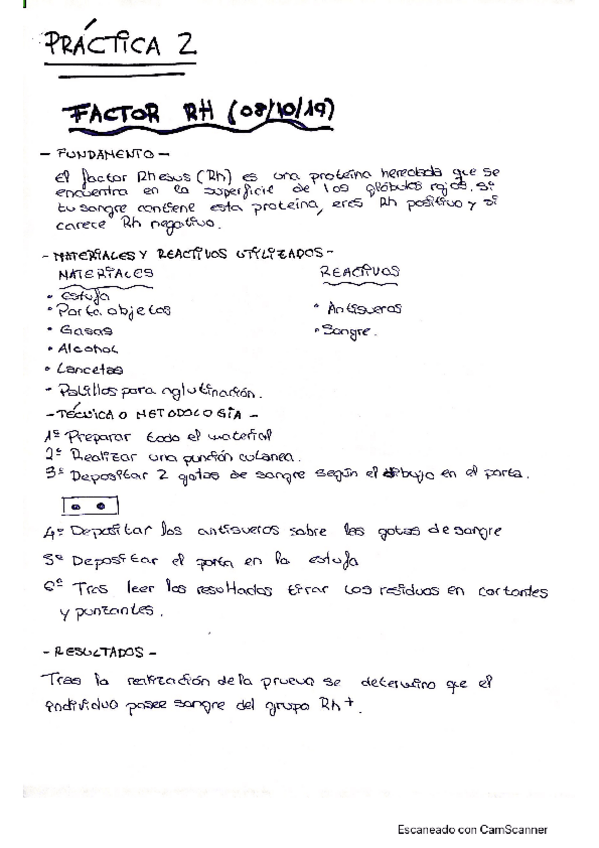 PRÁCTICA 2
FACTOR RH (08/10/19)
- FUNDAMENTO -
El factor Rhesus (Rh) es una proteína heredada que se
encuentra en la superficie de los glóbulos rojos. Si
tu sangre contiene esta proteína, eres Rh positivo y si
carece Rh negativo.
- MATERIALES Y REACTIVOS UTILIZADOS -
MATERIALES REACTIVOS
• Estufa
• Porta objetos • Antisueros
• Gasas • Sangre.
• Alcohol
• Lancetas
• Palillos para aglutinación.
- TÉCNICA O METODOLOGÍA -
1º Preparar todo el material
2º Realizar una punción cutanea.
3º Depositar 2 gotas de sangre según el dibujo en el porta.
4º Depositar los antisueros sobre las gotas de sangre
5º Depositar el porta en la estufa
6º Tras leer los resultados tirar los residuos en cortantes
y punzantes.
- RESULTADOS -
Tras la realización de la prueva se determino que el
individuo posee sangre del grupo Rh+.
Escaneado con CamScanner